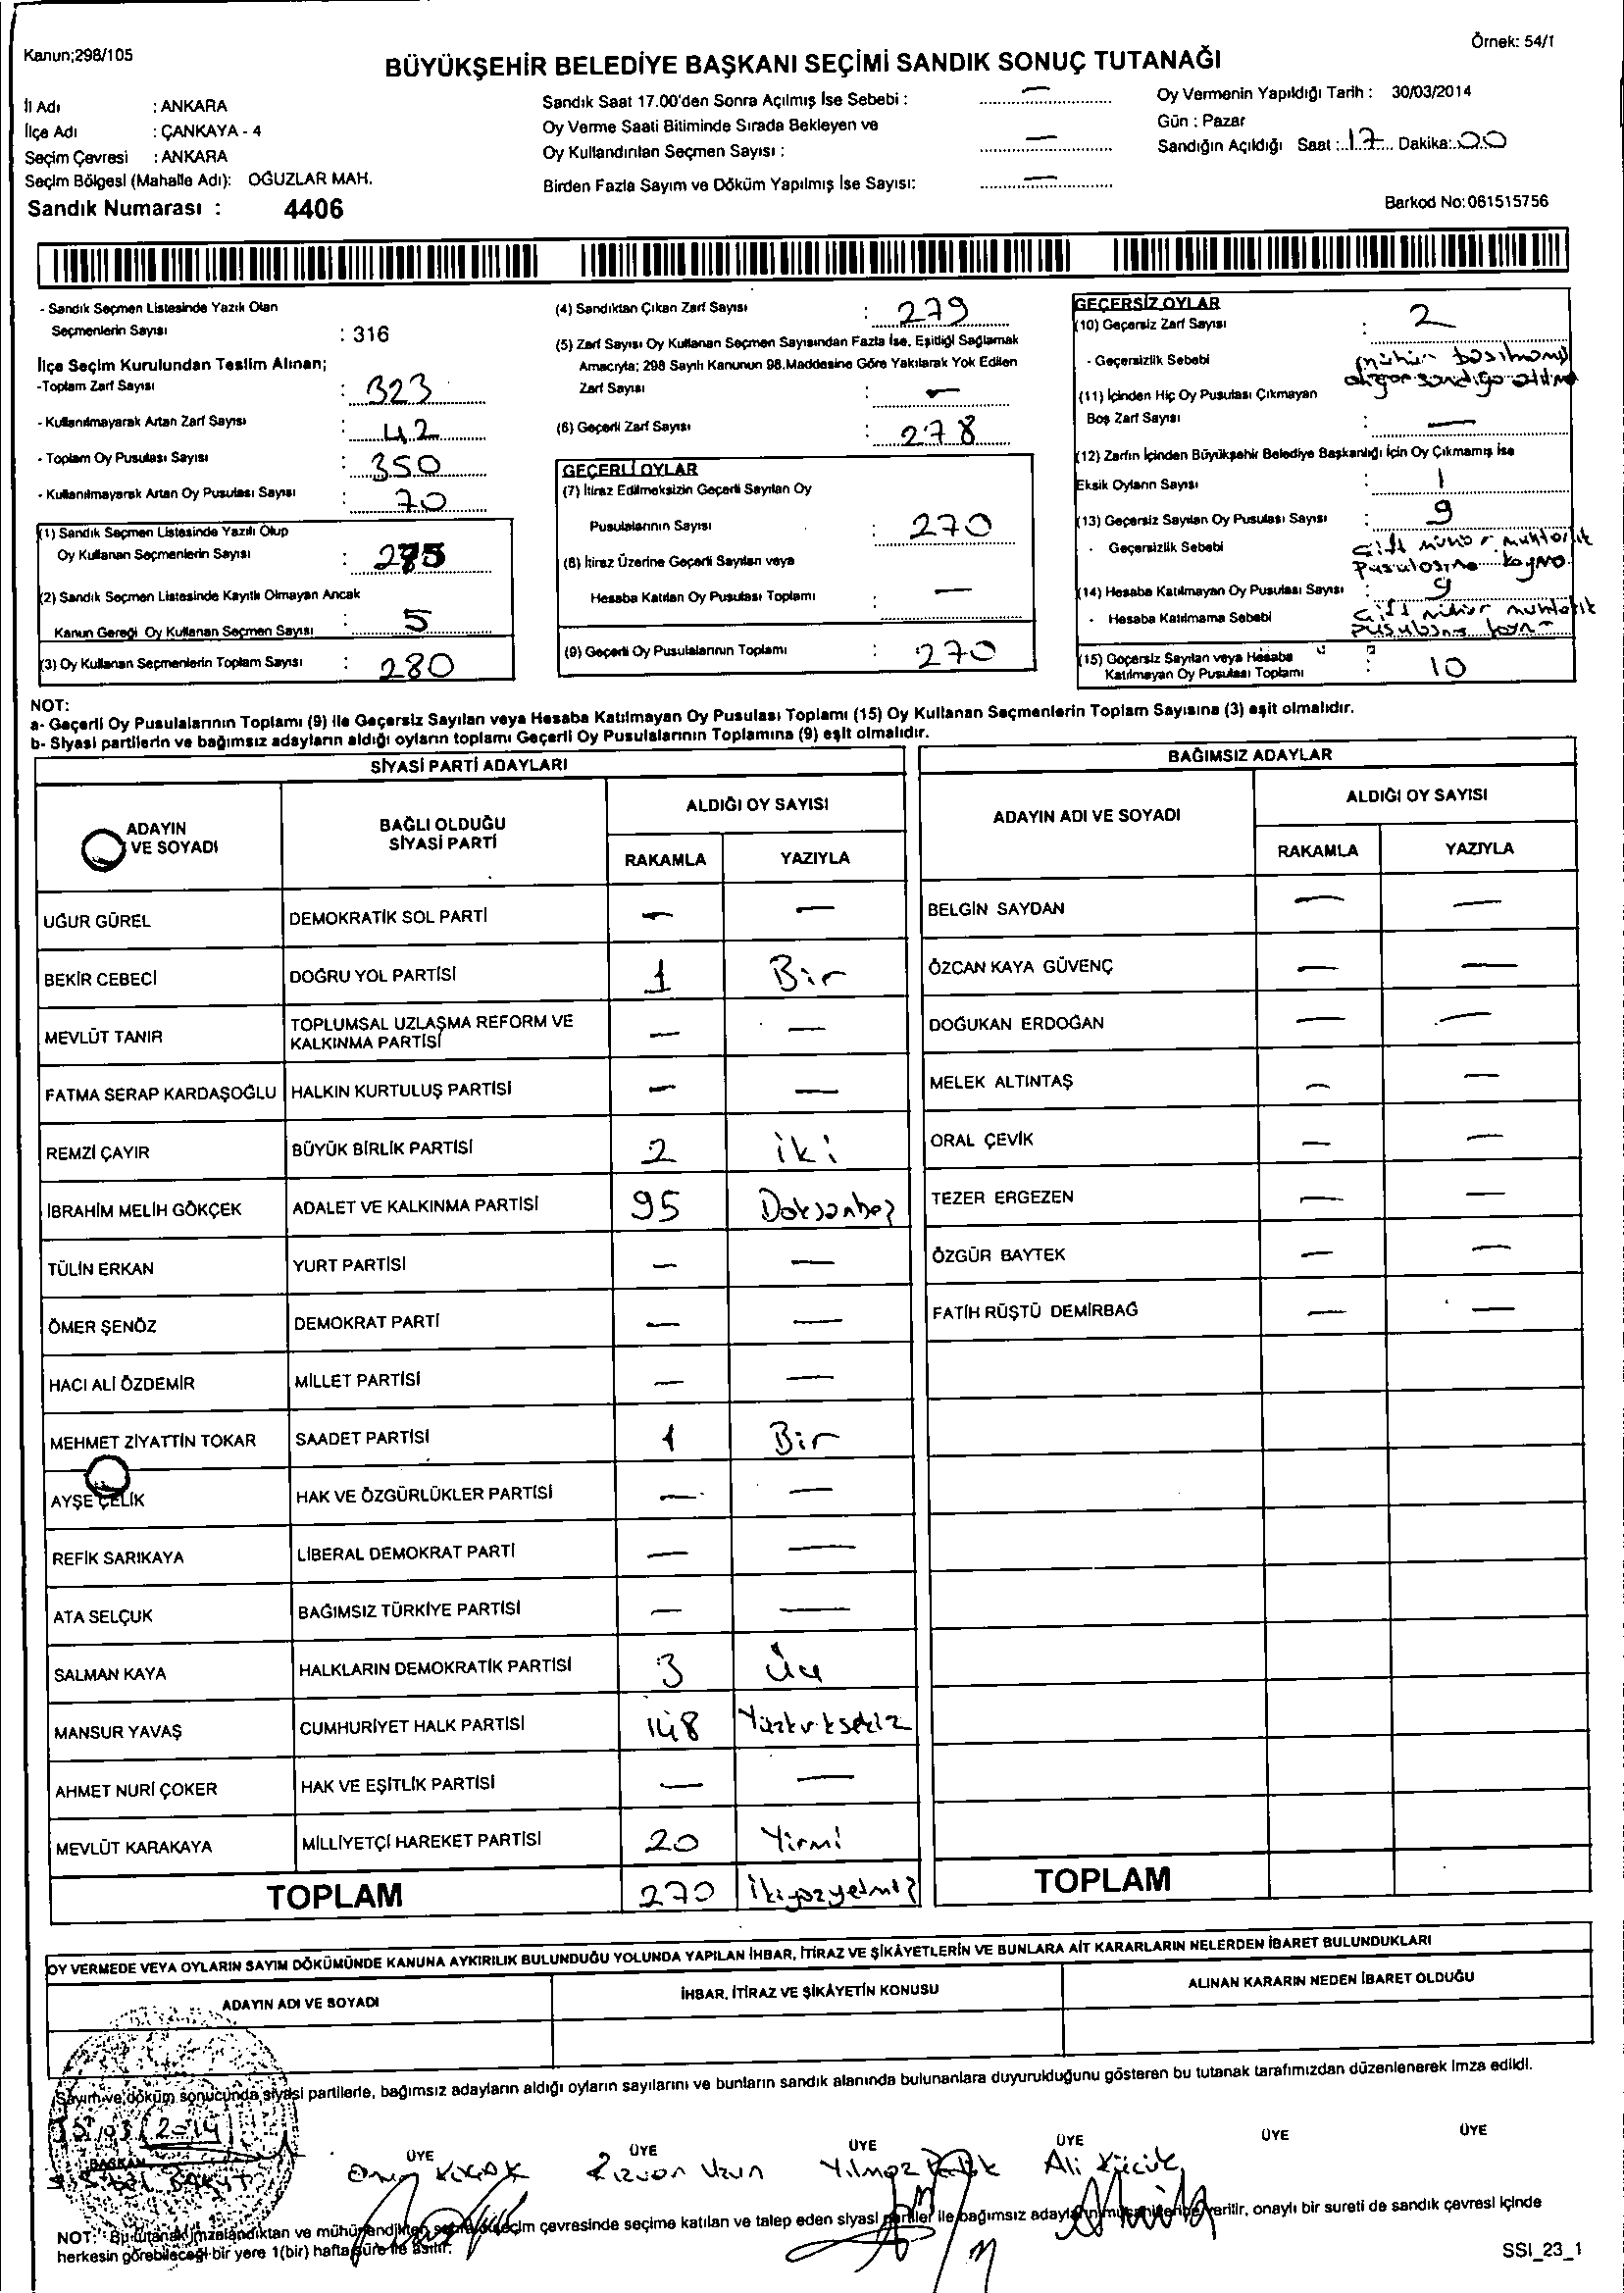 Kanun;298/105
Örnek: 54/1
BÜYÜKŞEHİR BELEDİYE BAŞKANI SEÇİMİ SANDIK SONUÇ TUTANAĞI
İl Adı : ANKARA
İlçe Adı : ÇANKAYA - 4
Seçim Çevresi : ANKARA
Seçim Bölgesi (Mahalle Adı): OĞUZLAR MAH.
Sandık Numarası : 4406
Sandık Saat 17.00'den Sonra Açılmış İse Sebebi : —
Oy Verme Saati Bitiminde Sırada Bekleyen ve
Oy Kullandırılan Seçmen Sayısı : —
Birden Fazla Sayım ve Döküm Yapılmış İse Sayısı: —
Oy Vermenin Yapıldığı Tarih : 30/03/2014
Gün : Pazar
Sandığın Açıldığı Saat : 17 Dakika: 00
Barkod No:061515756
- Sandık Seçmen Listesinde Yazılı Olan
Seçmenlerin Sayısı : 316
İlçe Seçim Kurulundan Teslim Alınan;
-Toplam Zarf Sayısı : 323
- Kullanılmayarak Artan Zarf Sayısı : 42
- Toplam Oy Pusulası Sayısı : 350
- Kullanılmayarak Artan Oy Pusulası Sayısı : 70
(1) Sandık Seçmen Listesinde Yazılı Olup
Oy Kullanan Seçmenlerin Sayısı : 275
(2) Sandık Seçmen Listesinde Kayıtlı Olmayan Ancak
Kanun Gereği Oy Kullanan Seçmen Sayısı : 5
(3) Oy Kullanan Seçmenlerin Toplam Sayısı : 280
(4) Sandıktan Çıkan Zarf Sayısı : 279
(5) Zarf Sayısı Oy Kullanan Seçmen Sayısından Fazla İse, Eşitliği Sağlamak
Amacıyla; 298 Sayılı Kanunun 98.Maddesine Göre Yakılarak Yok Edilen
Zarf Sayısı : —
(6) Geçerli Zarf Sayısı : 278
GEÇERLİ OYLAR
(7) İtiraz Edilmeksizin Geçerli Sayılan Oy
Pusulalarının Sayısı : 270
(8) İtiraz Üzerine Geçerli Sayılan veya
Hesaba Katılan Oy Pusulası Toplamı : —
(9) Geçerli Oy Pusulalarının Toplamı : 270
GEÇERSİZ OYLAR
(10) Geçersiz Zarf Sayısı : 2
- Geçersizlik Sebebi mühür basılmamış
(11) İçinden Hiç Oy Pusulası Çıkmayan
Boş Zarf Sayısı : —
(12) Zarfın İçinden Büyükşehir Belediye Başkanlığı İçin Oy Çıkmamış İse
Eksik Oyların Sayısı : 1
(13) Geçersiz Sayılan Oy Pusulası Sayısı : 9
- Geçersizlik Sebebi Çift mühür muhtarlık
pusulasına
(14) Hesaba Katılmayan Oy Pusulası Sayısı : 9
- Hesaba Katılmama Sebebi Çift mühür muhtarlık
(15) Geçersiz Sayılan veya Hesaba
Katılmayan Oy Pusulası Toplamı : 10
NOT:
a- Geçerli Oy Pusulalarının Toplamı (9) ile Geçersiz Sayılan veya Hesaba Katılmayan Oy Pusulası Toplamı (15) Oy Kullanan Seçmenlerin Toplam Sayısına (3) eşit olmalıdır.
b- Siyasi partilerin ve bağımsız adayların aldığı oyların toplamı Geçerli Oy Pusulalarının Toplamına (9) eşit olmalıdır.
SİYASİ PARTİ ADAYLARI
ADAYIN VE SOYADI BAĞLI OLDUĞU SİYASİ PARTİ ALDIĞI OY SAYISI
RAKAMLA YAZIYLA
UĞUR GÜREL DEMOKRATİK SOL PARTİ — —
BEKİR CEBECİ DOĞRU YOL PARTİSİ 1 Bir
MEVLÜT TANIR TOPLUMSAL UZLAŞMA REFORM VE KALKINMA PARTİSİ — —
FATMA SERAP KARDAŞOĞLU HALKIN KURTULUŞ PARTİSİ — —
REMZİ ÇAYIR BÜYÜK BİRLİK PARTİSİ 2 iki
İBRAHİM MELİH GÖKÇEK ADALET VE KALKINMA PARTİSİ 95 Doksanbeş
TÜLİN ERKAN YURT PARTİSİ — —
ÖMER ŞENÖZ DEMOKRAT PARTİ — —
HACI ALİ ÖZDEMİR MİLLET PARTİSİ — —
MEHMET ZİYATTİN TOKAR SAADET PARTİSİ 1 Bir
AYŞE ÇELİK HAK VE ÖZGÜRLÜKLER PARTİSİ — —
REFİK SARIKAYA LİBERAL DEMOKRAT PARTİ — —
ATA SELÇUK BAĞIMSIZ TÜRKİYE PARTİSİ — —
SALMAN KAYA HALKLARIN DEMOKRATİK PARTİSİ 3 Üç
MANSUR YAVAŞ CUMHURİYET HALK PARTİSİ 148 Yüzkırksekiz
AHMET NURİ ÇOKER HAK VE EŞİTLİK PARTİSİ — —
MEVLÜT KARAKAYA MİLLİYETÇİ HAREKET PARTİSİ 20 Yirmi
TOPLAM 270 İkiyüzyetmiş
BAĞIMSIZ ADAYLAR
ADAYIN ADI VE SOYADI ALDIĞI OY SAYISI
RAKAMLA YAZIYLA
BELGİN SAYDAN — —
ÖZCAN KAYA GÜVENÇ — —
DOĞUKAN ERDOĞAN — —
MELEK ALTINTAŞ — —
ORAL ÇEVİK — —
TEZER ERGEZEN — —
ÖZGÜR BAYTEK — —
FATİH RÜŞTÜ DEMİRBAĞ — —
TOPLAM
OY VERMEDE VEYA OYLARIN SAYIM DÖKÜMÜNDE KANUNA AYKIRILIK BULUNDUĞU YOLUNDA YAPILAN İHBAR, İTİRAZ VE ŞİKÂYETLERİN VE BUNLARA AİT KARARLARIN NELERDEN İBARET BULUNDUKLARI
ADAYIN ADI VE SOYADI İHBAR, İTİRAZ VE ŞİKÂYETİN KONUSU ALINAN KARARIN NEDEN İBARET OLDUĞU
Sayım ve döküm sonucunda siyasi partilerle, bağımsız adayların aldığı oyların sayılarını ve bunların sandık alanında bulunanlara duyurulduğunu gösteren bu tutanak tarafımızdan düzenlenerek imza edildi.
BAŞKAN ÜYE ÜYE ÜYE ÜYE ÜYE ÜYE
Rızvan Uzun Yılmaz Ali Küçük
NOT: Bu tutanak imzalandıktan ve mühürlendikten sonra seçim çevresinde seçime katılan ve talep eden siyasi partiler ile bağımsız adayların müşahitlerine verilir, onaylı bir sureti de sandık çevresi içinde
herkesin görebileceği bir yere 1(bir) hafta süre ile asılır.
SSI_23_1